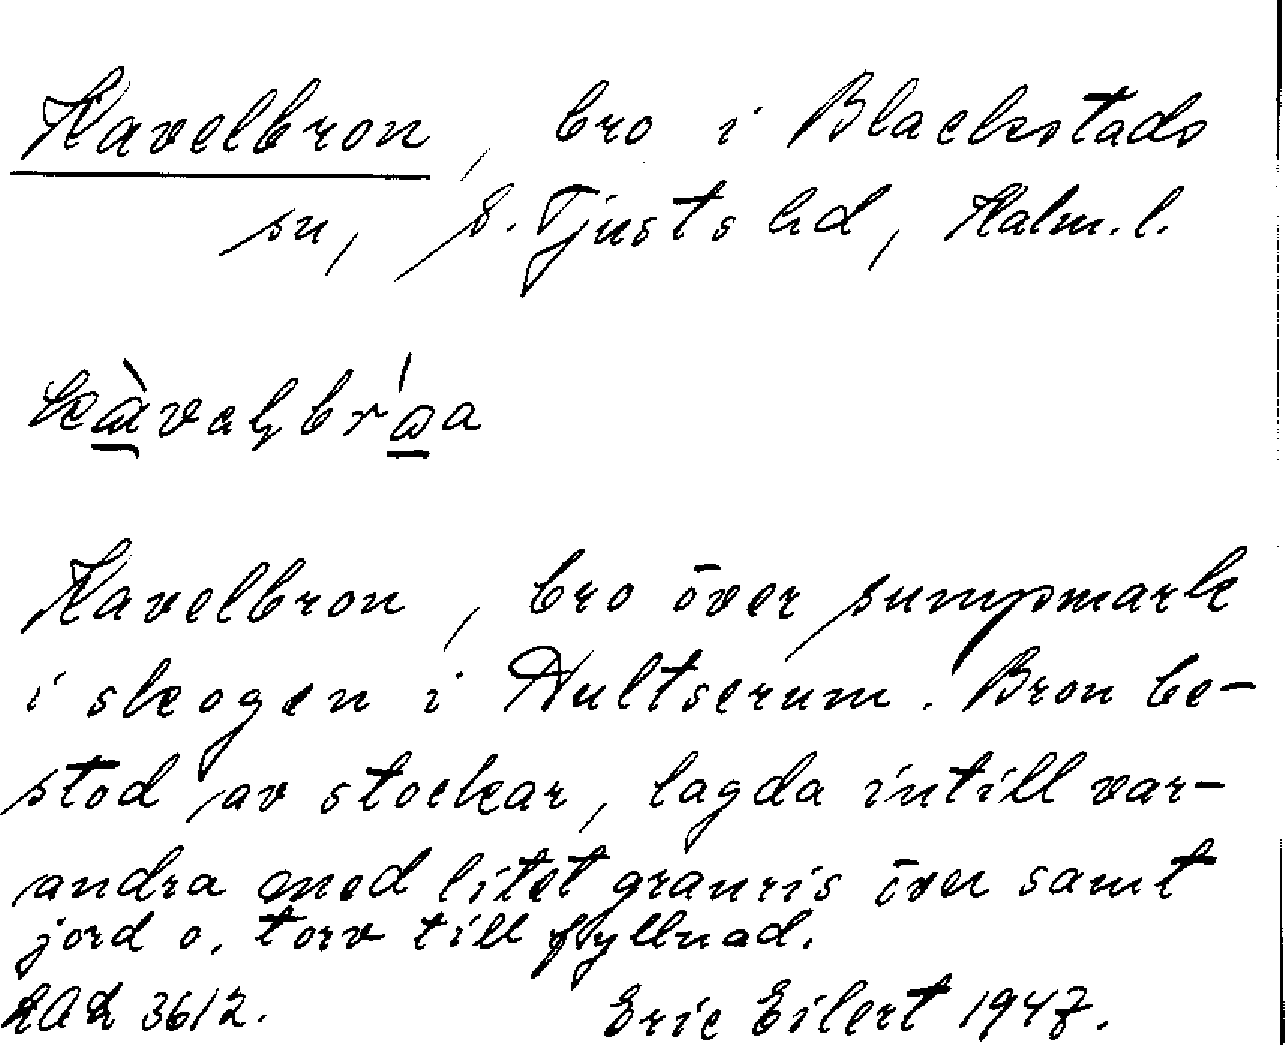 Kavelbron, bro i Blackstads
sn, S. Tjusts hd, Kalm. l.
Kavelbron, bro över sumpmark
i skogen i Hultserum. Bron be-
stod av stockar, lagda intill var-
andra med litet granris över samt
jord o. torv till fyllnad.
3612. Eric Eilert 1947.